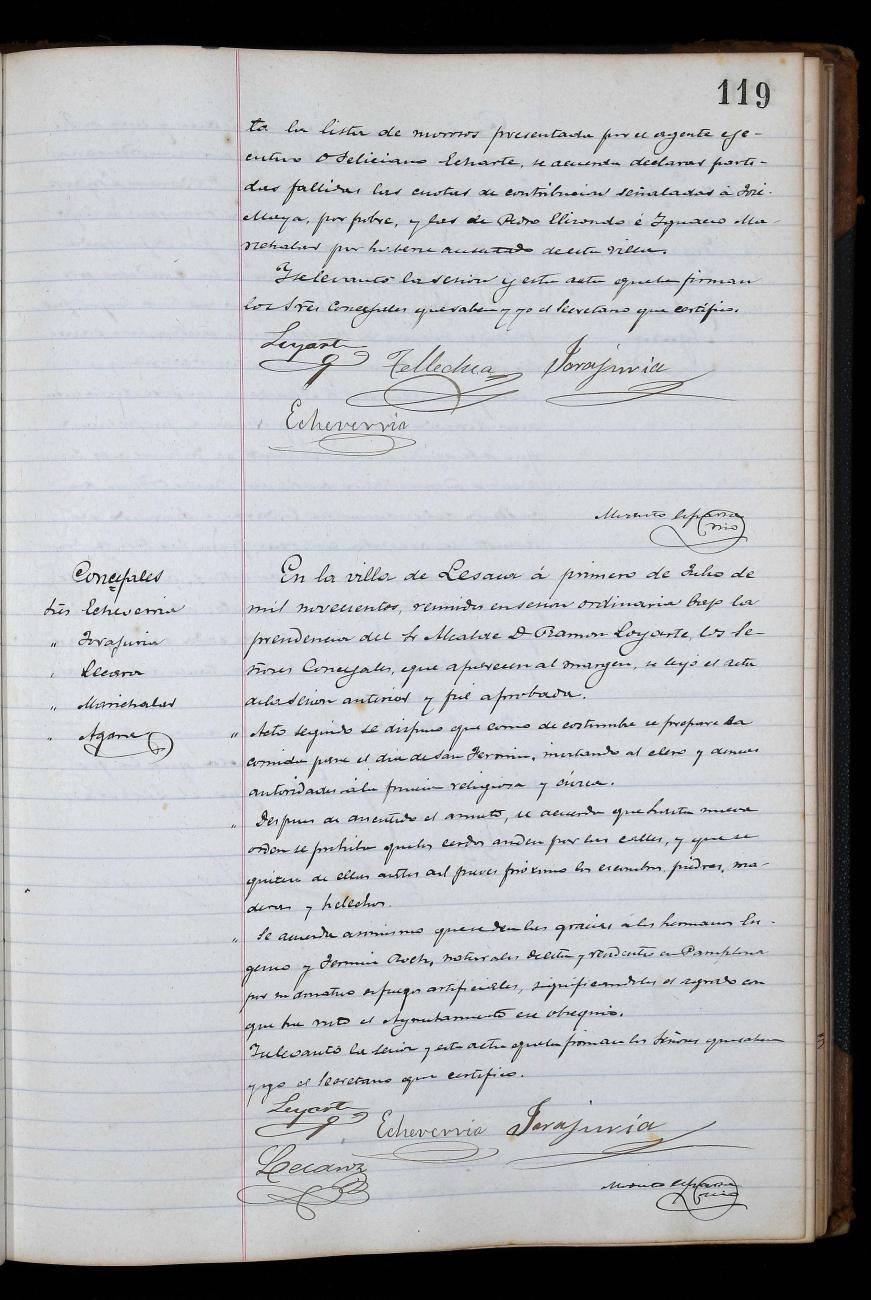 119
ta la lista de morosos presentada por el agente eje-
cutivo D Feliciano Echarte, se acuerda declarar parti-
das fallidas las cuotas de contribucion señaladas á José
Maya, por pobre, y las de Pedro Elizondo é Ignacio Ma-
richalar por haberse ausentado de esta villa.
Y se levantó la sesion y esta acta que la firman
los Sres Concejales que saben y yo el Secretario que certifico.
Loyarte
Tellechea Irazuria
Echeverria
Concejales
Sres Echeverria
" Irazuria
" Lecaroz
" Marichalar
" Agara
En la villa de Lesaca á primero de Julio de
mil novecientos, reunidos en sesion ordinaria bajo la
presidencia del Sr Alcalde D Ramon Loyarte, los Se-
ñores Concejales, que aparecen al margen, se leyó el acta
de la sesion anterior y fué aprobada.
" Acto seguido se dispuso que como de costumbre se prepare la
comida para el dia de San Fermin, invitando al clero y demas
autoridades á la funcion religiosa y cívica.
" Despues de discutido el asunto, se acuerda que hasta nueva
orden se prohiba que los cerdos anden por las calles, y que se
quiten de ellas antes del jueves próximo los escombros, piedras, ma-
deras y helechos.
" Se acuerda asimismo que se den las gracias á los hermanos Eu-
genio y Fermin naturales de esta y residentes en Pamplona
por su donativo en fuegos artificiales, significandoles el agrado con
que ha visto el Ayuntamiento ese obsequio.
Y se levantó la sesion y esta acta que la firman los Señores que saben
y yo el Secretario que certifico.
Loyarte
Echeverria Irazuria
Lecaroz